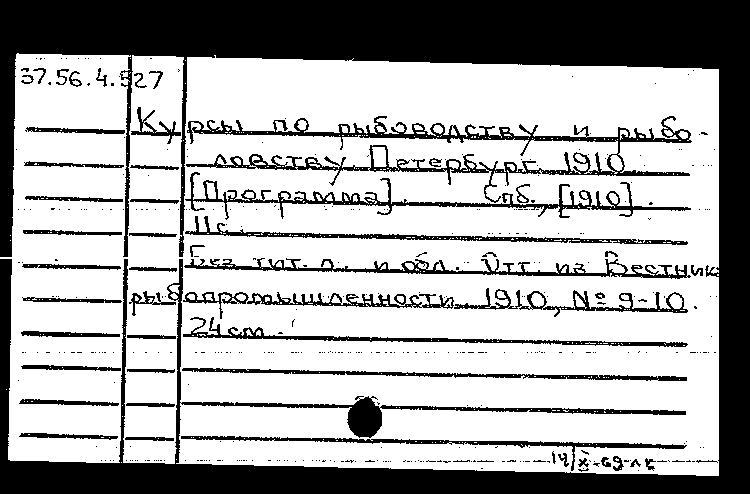 37.56.4.527
Курсы по рыбоводству и рыбо-
ловству. Петербург. 1910
[Программа]. Спб., [1910].
11с.
Без тит. л. и обл. Отт. из Вестник
рыбопромышленности. 1910, № 9-10.
24cm.
14/X-69